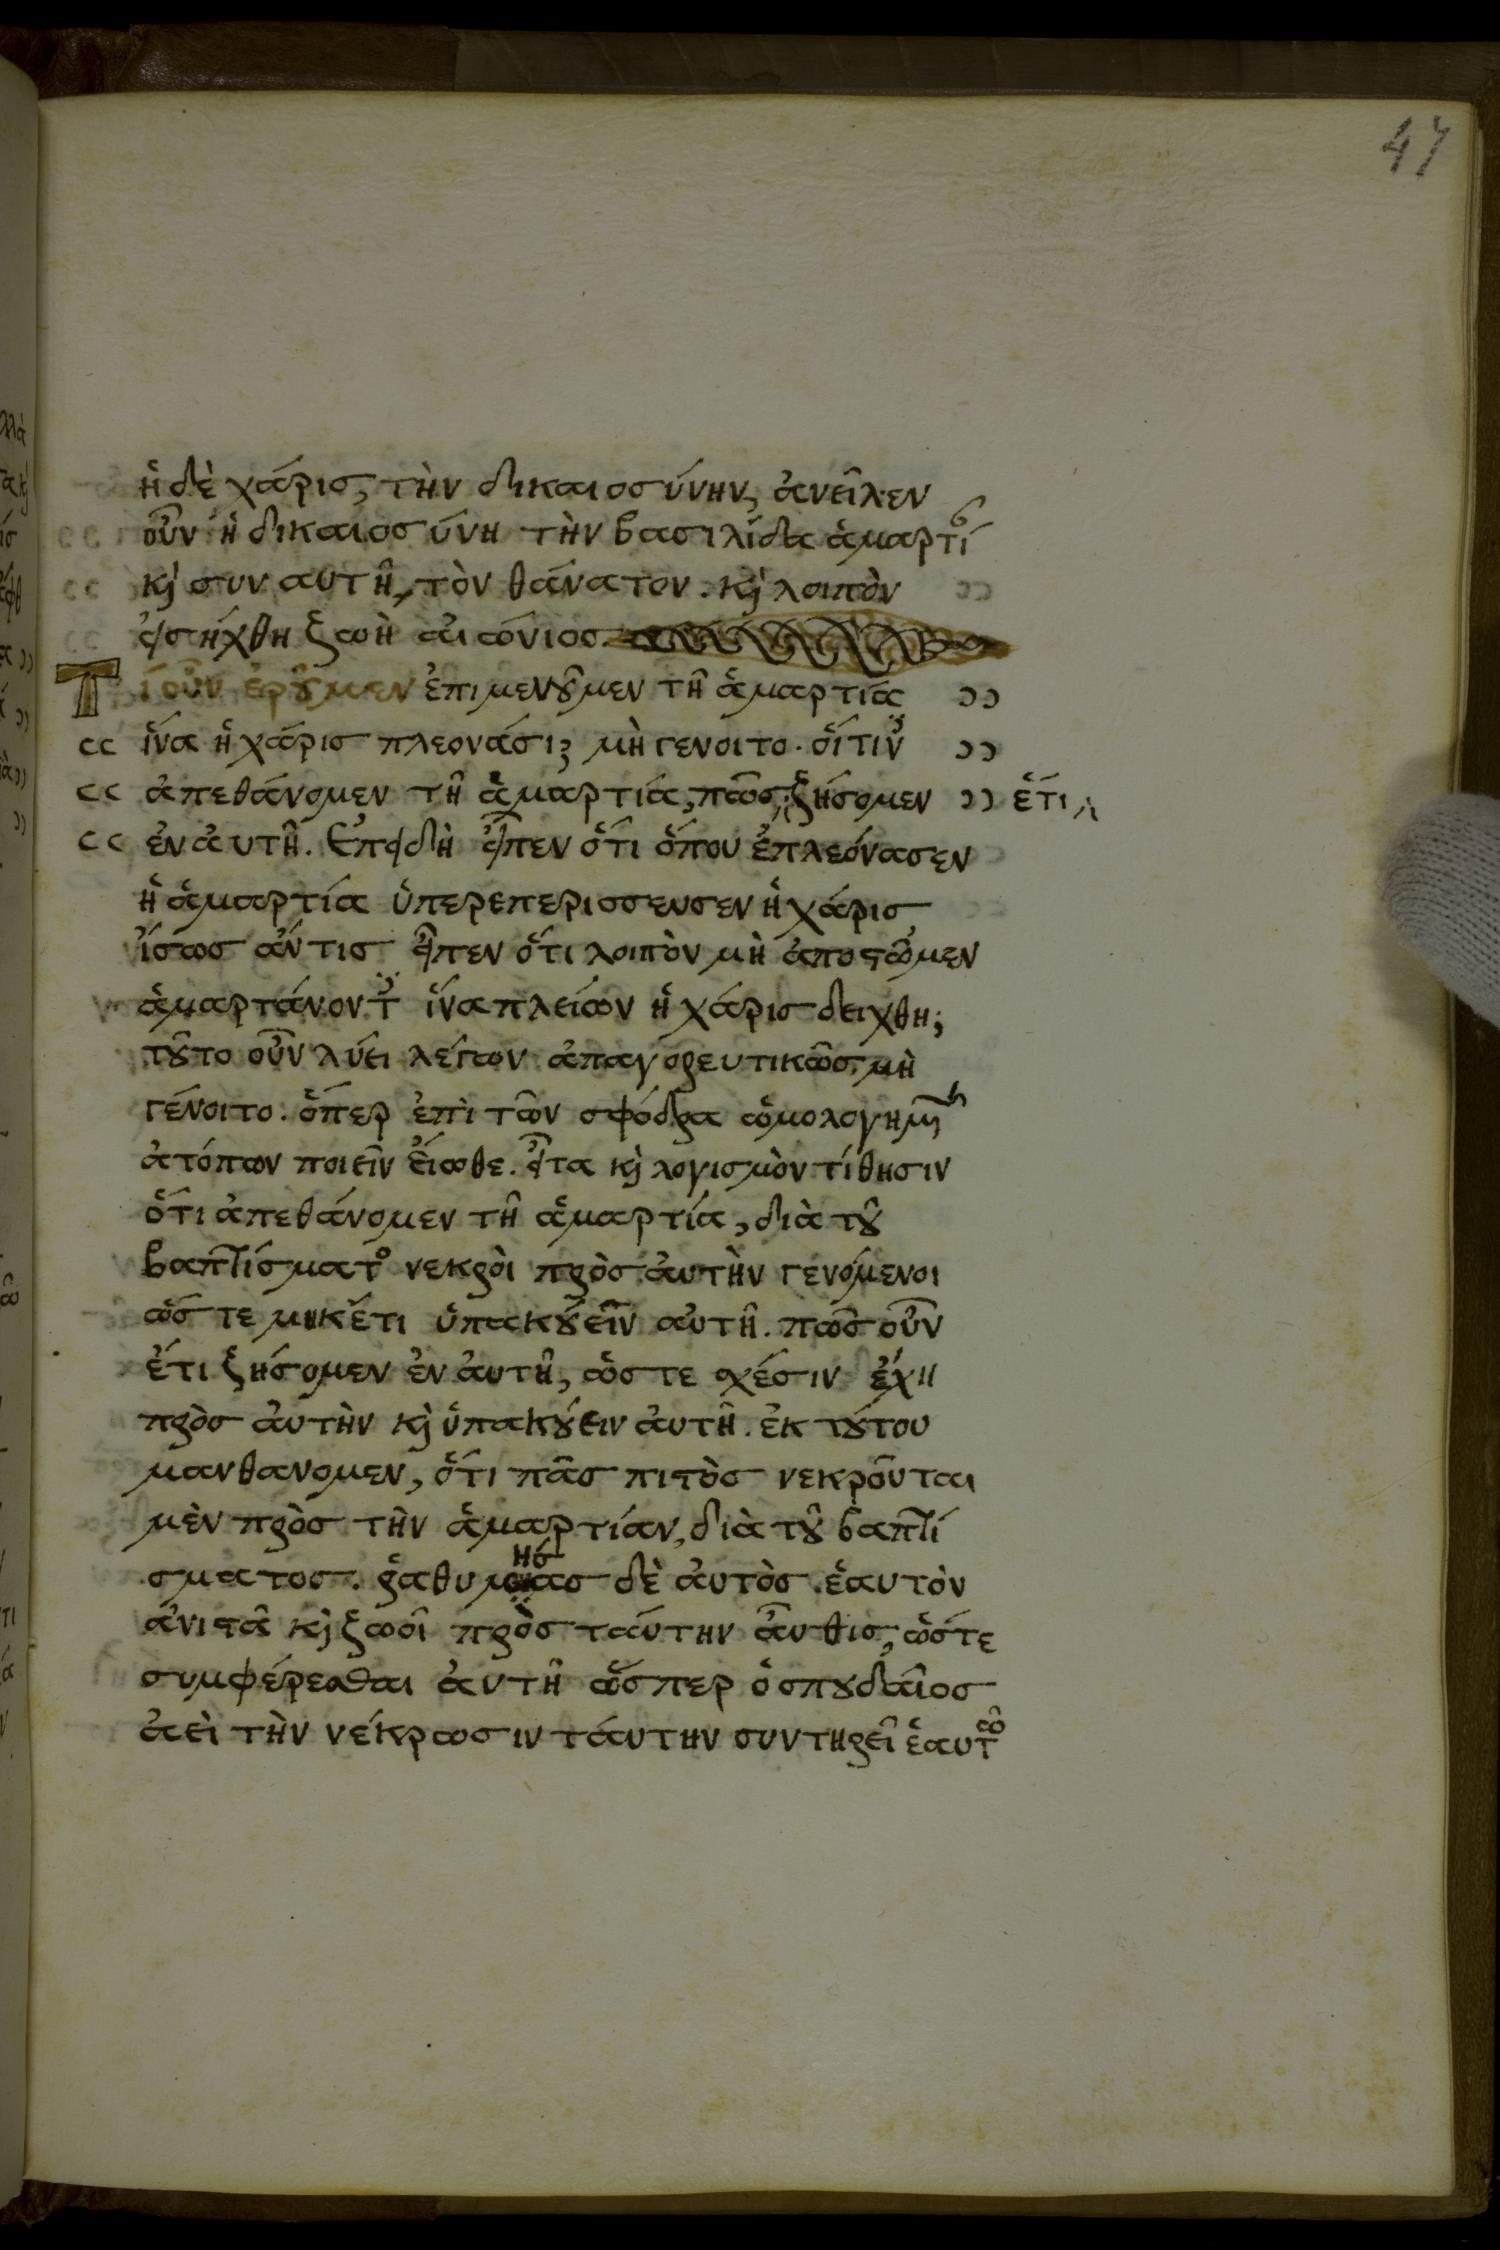 47
ἡ δὲ χάρις, τὴν δικαιοσύνην, ἀνεῖλεν
οὖν ἡ δικαιοσύνη τὴν βασιλίδα ἁμαρτί
κ̀ συν αυτῆ, τὸν θάνατον. κ̀ λοιπὸν
εἰσήχθη ζωὴ αἰώνιος
Τί οὖν ἐροῦμεν ἐπιμενοῦμεν τῆ ἁμαρτία
ἵνα ἡ χάρις πλεονάση; μὴ γενοιτο. οἵτιν
ἀπεθάνομεν τῆ ἁμαρτία, πῶς ζήσομεν ἔτι
ἐν ἀυτῆ. Ἐπειδὴ εἶπεν ὅτι ὅπου ἐπλεόνασεν
ἡ ἁμαρτία ὑπερεπερισσευσεν ἡ χάρις
ἴσως ἄν τις εἶπεν ὅτι λοιπὸν μὴ ἀποστῶμεν
ἁμαρτάνοντ ἵνα πλείων ἡ χάρις δειχθη;
τοῦτο οὖν λύει λέγων ἀπαγορευτικῶς, μὴ
γένοιτο. ὅπερ ἐπὶ τῶν σφόδρα ὡμολογημ
ἀτόπων ποιεῖν εἴωθε. εἶτα κ̀ λογισμὸν τίθησιν
ὅτι ἀπεθάνομεν τῆ ἁμαρτία, διὰ τοῦ
βαπτίσματο νεκροὶ πρὸς ἀυτὴν γενόμενοι
ὥστε μηκέτι ὑπακούειν αὐτῆ. πῶς οὖν
ἔτι ζήσομεν ἐν ἀυτῆ, ὥστε σχέσιν ἔχειν
πρὸς ἀυτὴν κ̀ ὑπακούειν ἀυτῆ. ἐκ τούτου
μανθανομεν, ὅτι πᾶς πιστὸς νεκροῦται
μὲν πρὸς τὴν ἁμαρτίαν, διὰ τοῦ βαπτί
σματος. ῥαθυμήσας δὲ ἀυτὸς. ἑαυτὸν
ἀνιστᾶ κ̀ ζωοῖ πρὸς ταύτην ἆυθις, ὥστε
συμφέρεσθαι ἀυτῆ ὥσπερ ὁ σπουδᾶιος
ἀεὶ τὴν νέκρωσιν τάυτην συντηρεῖ ἑαυτῶ